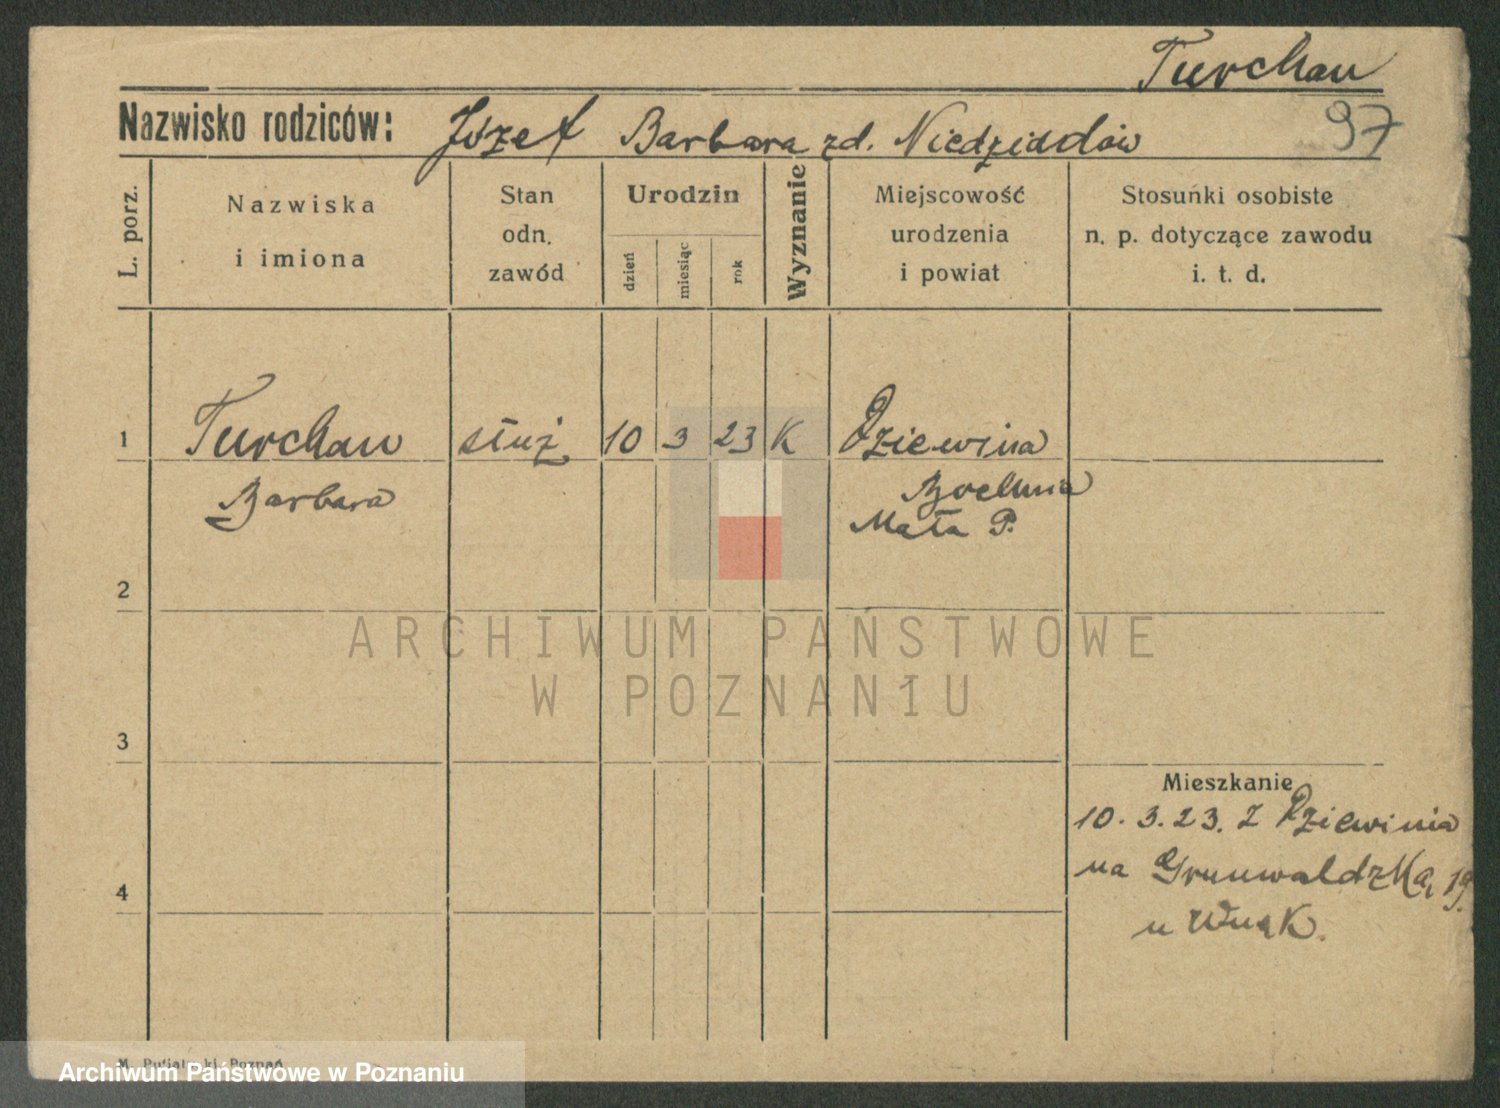 Turchan
Nazwisko rodziców: Józef Barbara zd. Niedzieldów
97
L. porz.
Nazwiska
i imiona
Stan
odn.
zawód
Urodzin
dzień
miesiąc
rok
Wyznanie
Miejscowość
urodzenia
i powiat
Stosunki osobiste
n. p. dotyczące zawodu
i. t. d.
1 Turchan służ 10 3 23 K Dziewina
Barbara Bochnia
Mała P.
2
3
4
Mieszkanie
10. 3. 23. z Dziewinia
na Grunwaldzką 19.
u Wnąk.
ARCHIWUM PAŃSTWOWE
W POZNANIU
Poznań
Archiwum Państwowe w Poznaniu